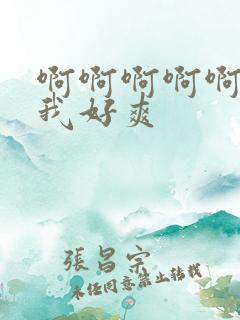 啊啊啊啊啊
我好爽
張昌宗
未经同意禁止转载